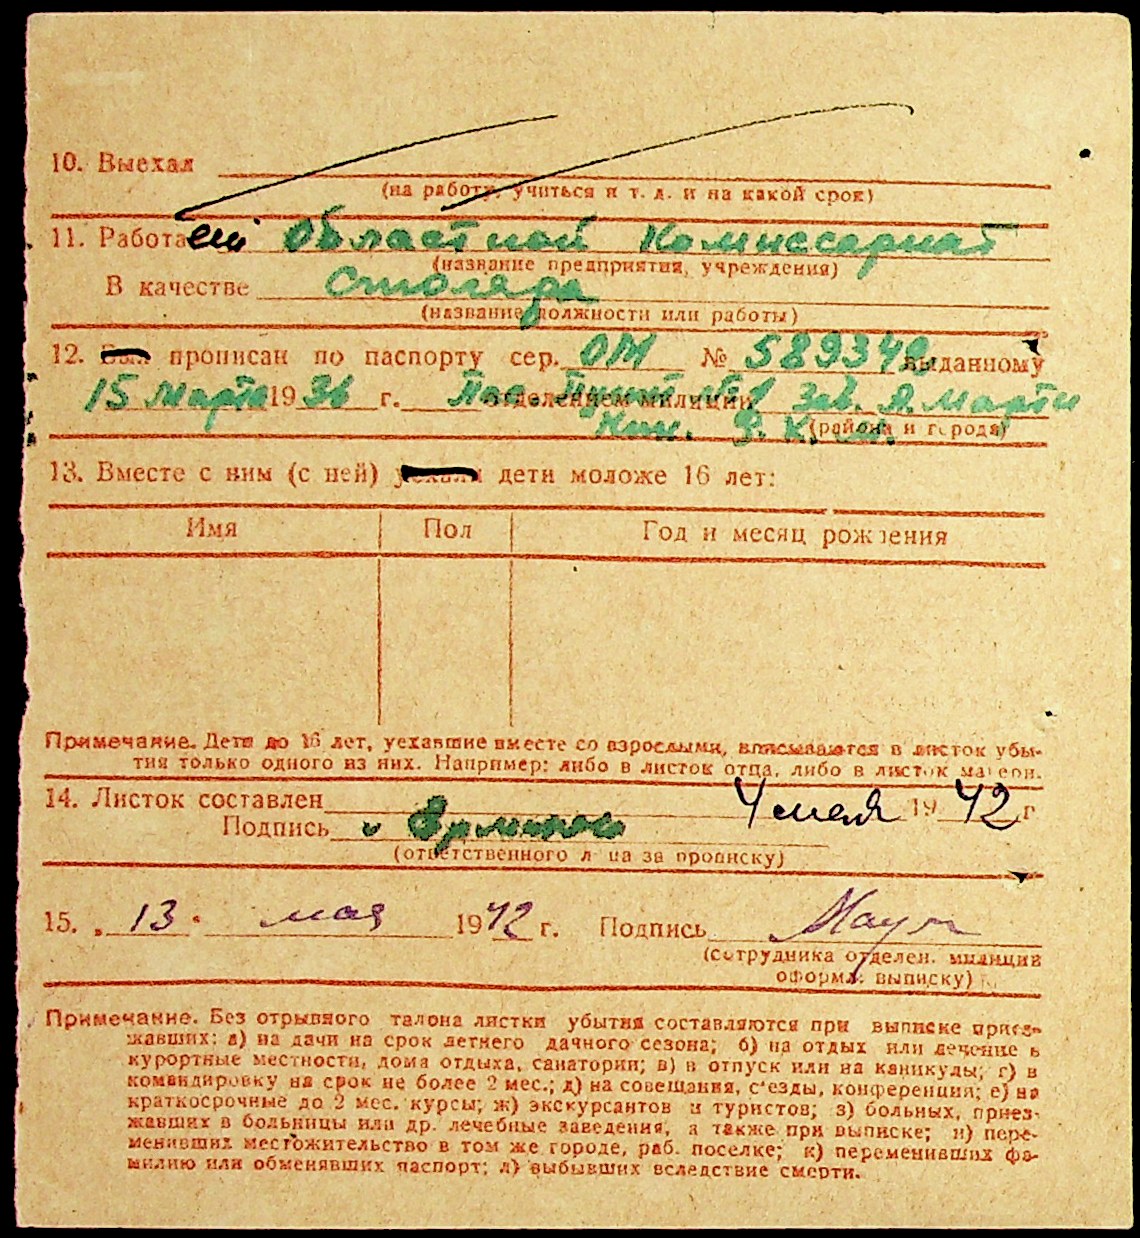 10. Выехал
(на работу, учиться и т. д. и на какой срок)
11. Работает Областной Комиссариат
(название предприятия, учреждения)
В качестве Столяра
(название должности или работы)
12. прописан по паспорту сер. ОМ № 589349 выданному
15 Марта 1936 г. отделением милиции Зав. А. Марти
(района и города)
13. Вместе с ним (с ней) дети моложе 16 лет:
Имя Пол Год и месяц рождения
Примечание. Дети до 16 лет, уехавшие вместе со взрослыми, вписываются в листок убы-
тия только одного из них. Например: либо в листок отца, либо в листок матери.
14. Листок составлен 4 мая 1942 г
Подпись
(ответственного лица за прописку)
15. „ 13 " мая 1942 г. Подпись
(сотрудника отделен. милиции
оформл. выписку)
Примечание. Без отрывного талона листки убытия составляются при выписке приез-
жавших: а) на дачи на срок летнего дачного сезона; б) на отдых или лечение в
курортные местности, дома отдыха, санатории; в) в отпуск или на каникулы; г) в
командировку на срок не более 2 мес.; д) на совещания, с'езды, конференции; е) на
краткосрочные до 2 мес. курсы; ж) экскурсантов и туристов; з) больных, приез-
жавших в больницы или др. лечебные заведения, а также при выписке; и) пере-
менивших местожительство в том же городе, раб. поселке; к) переменивших фа-
милию или обменявших паспорт; л) выбывших вследствие смерти.